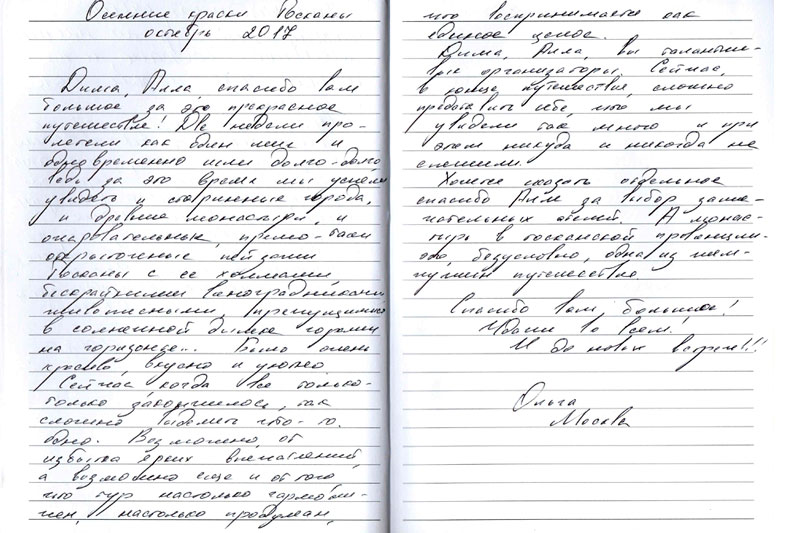 Осенние краски Тосканы
октябрь 2017
Дима, Алла, спасибо вам
большое за это прекрасное
путешествие! Две недели про-
летели как один миг и
одновременно шли долго-долго,
ведь за это время мы успели
увидеть и старинные города,
и древние монастыри, и
очаровательные, прямо-таки
открыточные пейзажи
Тосканы с ее холмами,
бескрайними виноградниками
живописными,
в солнечной дымке горами
на горизонте... Было очень
красиво, вкусно и уютно.
Сейчас когда все только-
только закончилось, так
сложно выделить что-то
одно. Возможно, от
избытка ярких впечатлений,
а возможно еще и от того,
что тур настолько гармони-
чен, настолько продуман,
что воспринимается как
единое целое.
Дима, Алла, вы талантли-
вые организаторы. Сейчас,
в конце путешествия, сложно
представить себе, что мы
увидели так много и при
этом никуда и никогда не
спешили.
Хочется сказать отдельное
спасибо Алле за выбор заме-
чательных отелей. А монас-
тырь в тосканской провинции-
это, безусловно, одна из жем-
чужин путешествия.
Спасибо вам, большое!
Удачи во всем!
И до новых встреч!!!
Ольга
Москва